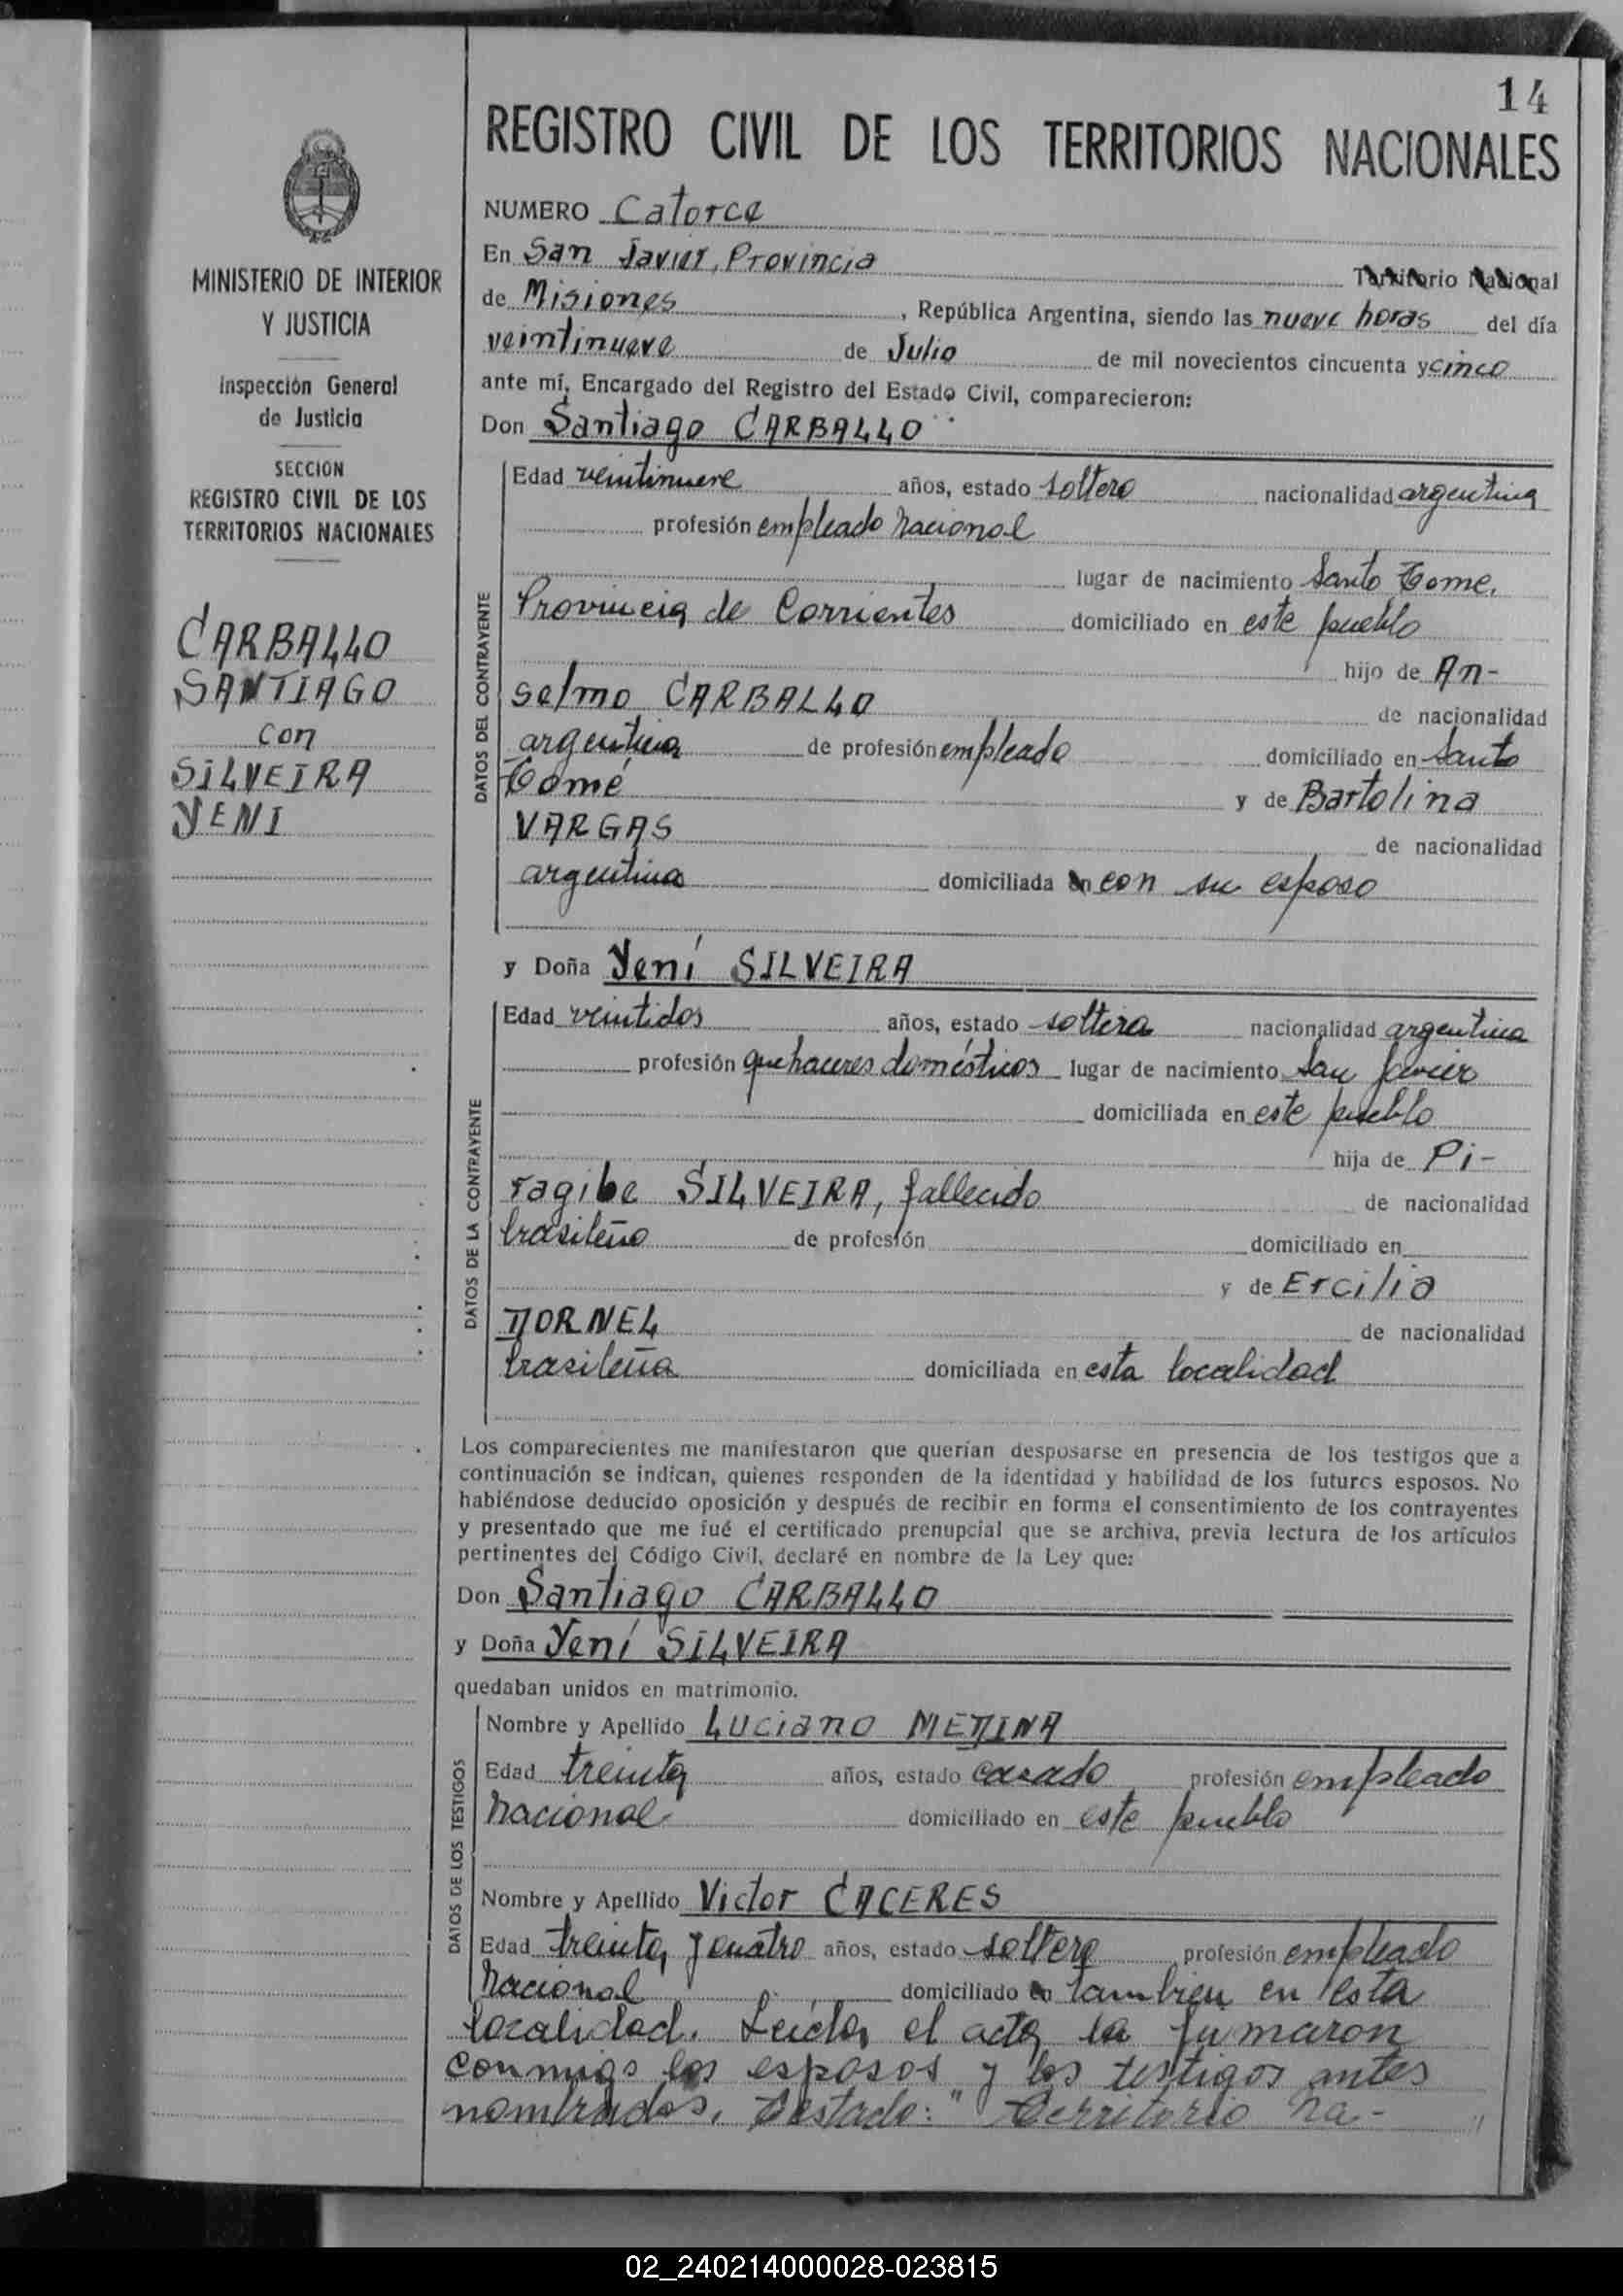 14
REGISTRO CIVIL DE LOS TERRITORIOS NACIONALES
MINISTERIO DE INTERIOR
Y JUSTICIA
Inspección General
de Justicia
SECCION
REGISTRO CIVIL DE LOS
TERRITORIOS NACIONALES
CARBALLO
SANTIAGO
con
SILVEIRA
YENI
NUMERO Catorce
En San Javier, Provincia Territorio Nacional
de Misiones, República Argentina, siendo las nueve horas del día
veintinueve de Julio de mil novecientos cincuenta y cinco
ante mí, Encargado del Registro del Estado Civil, comparecieron:
Don Santiago CARBALLO
DATOS DEL CONTRAYENTE
Edad veintinueve años, estado soltero nacionalidad argentina
profesión empleado nacional
lugar de nacimiento Santo Tome,
Provincia de Corrientes domiciliado en este pueblo
hijo de An-
selmo CARBALLO de nacionalidad
argentina de profesión empleado domiciliado en Santo
Tomé y de Bartolina
VARGAS de nacionalidad
argentina domiciliada en con su esposo
y Doña Yení SILVEIRA
DATOS DE LA CONTRAYENTE
Edad veintidos años, estado soltera nacionalidad argentina
profesión quehaceres domésticos lugar de nacimiento San Javier
domiciliada en este pueblo
hija de Pi-
ragibe SILVEIRA, fallecido de nacionalidad
brasileño de profesión domiciliado en
y de Ercilia
DORNEL de nacionalidad
brasileña domiciliada en esta localidad
Los comparecientes me manifestaron que querían desposarse en presencia de los testigos que a
continuación se indican, quienes responden de la identidad y habilidad de los futuros esposos. No
habiéndose deducido oposición y después de recibir en forma el consentimiento de los contrayentes
y presentado que me fué el certificado prenupcial que se archiva, previa lectura de los artículos
pertinentes del Código Civil, declaré en nombre de la Ley que:
Don Santiago CARBALLO
y Doña Yení SILVEIRA
quedaban unidos en matrimonio.
DATOS DE LOS TESTIGOS
Nombre y Apellido Luciano MEDINA
Edad treinta años, estado casado profesión empleado
nacional domiciliado en este pueblo
Nombre y Apellido Victor CACERES
Edad treinta y cuatro años, estado soltero profesión empleado
nacional domiciliado en tambien en esta
localidad. Leída el acta la firmaron
conmigo los esposos y los testigos antes
nombrados. Testado: "Territorio Na-"
02_240214000028-023815